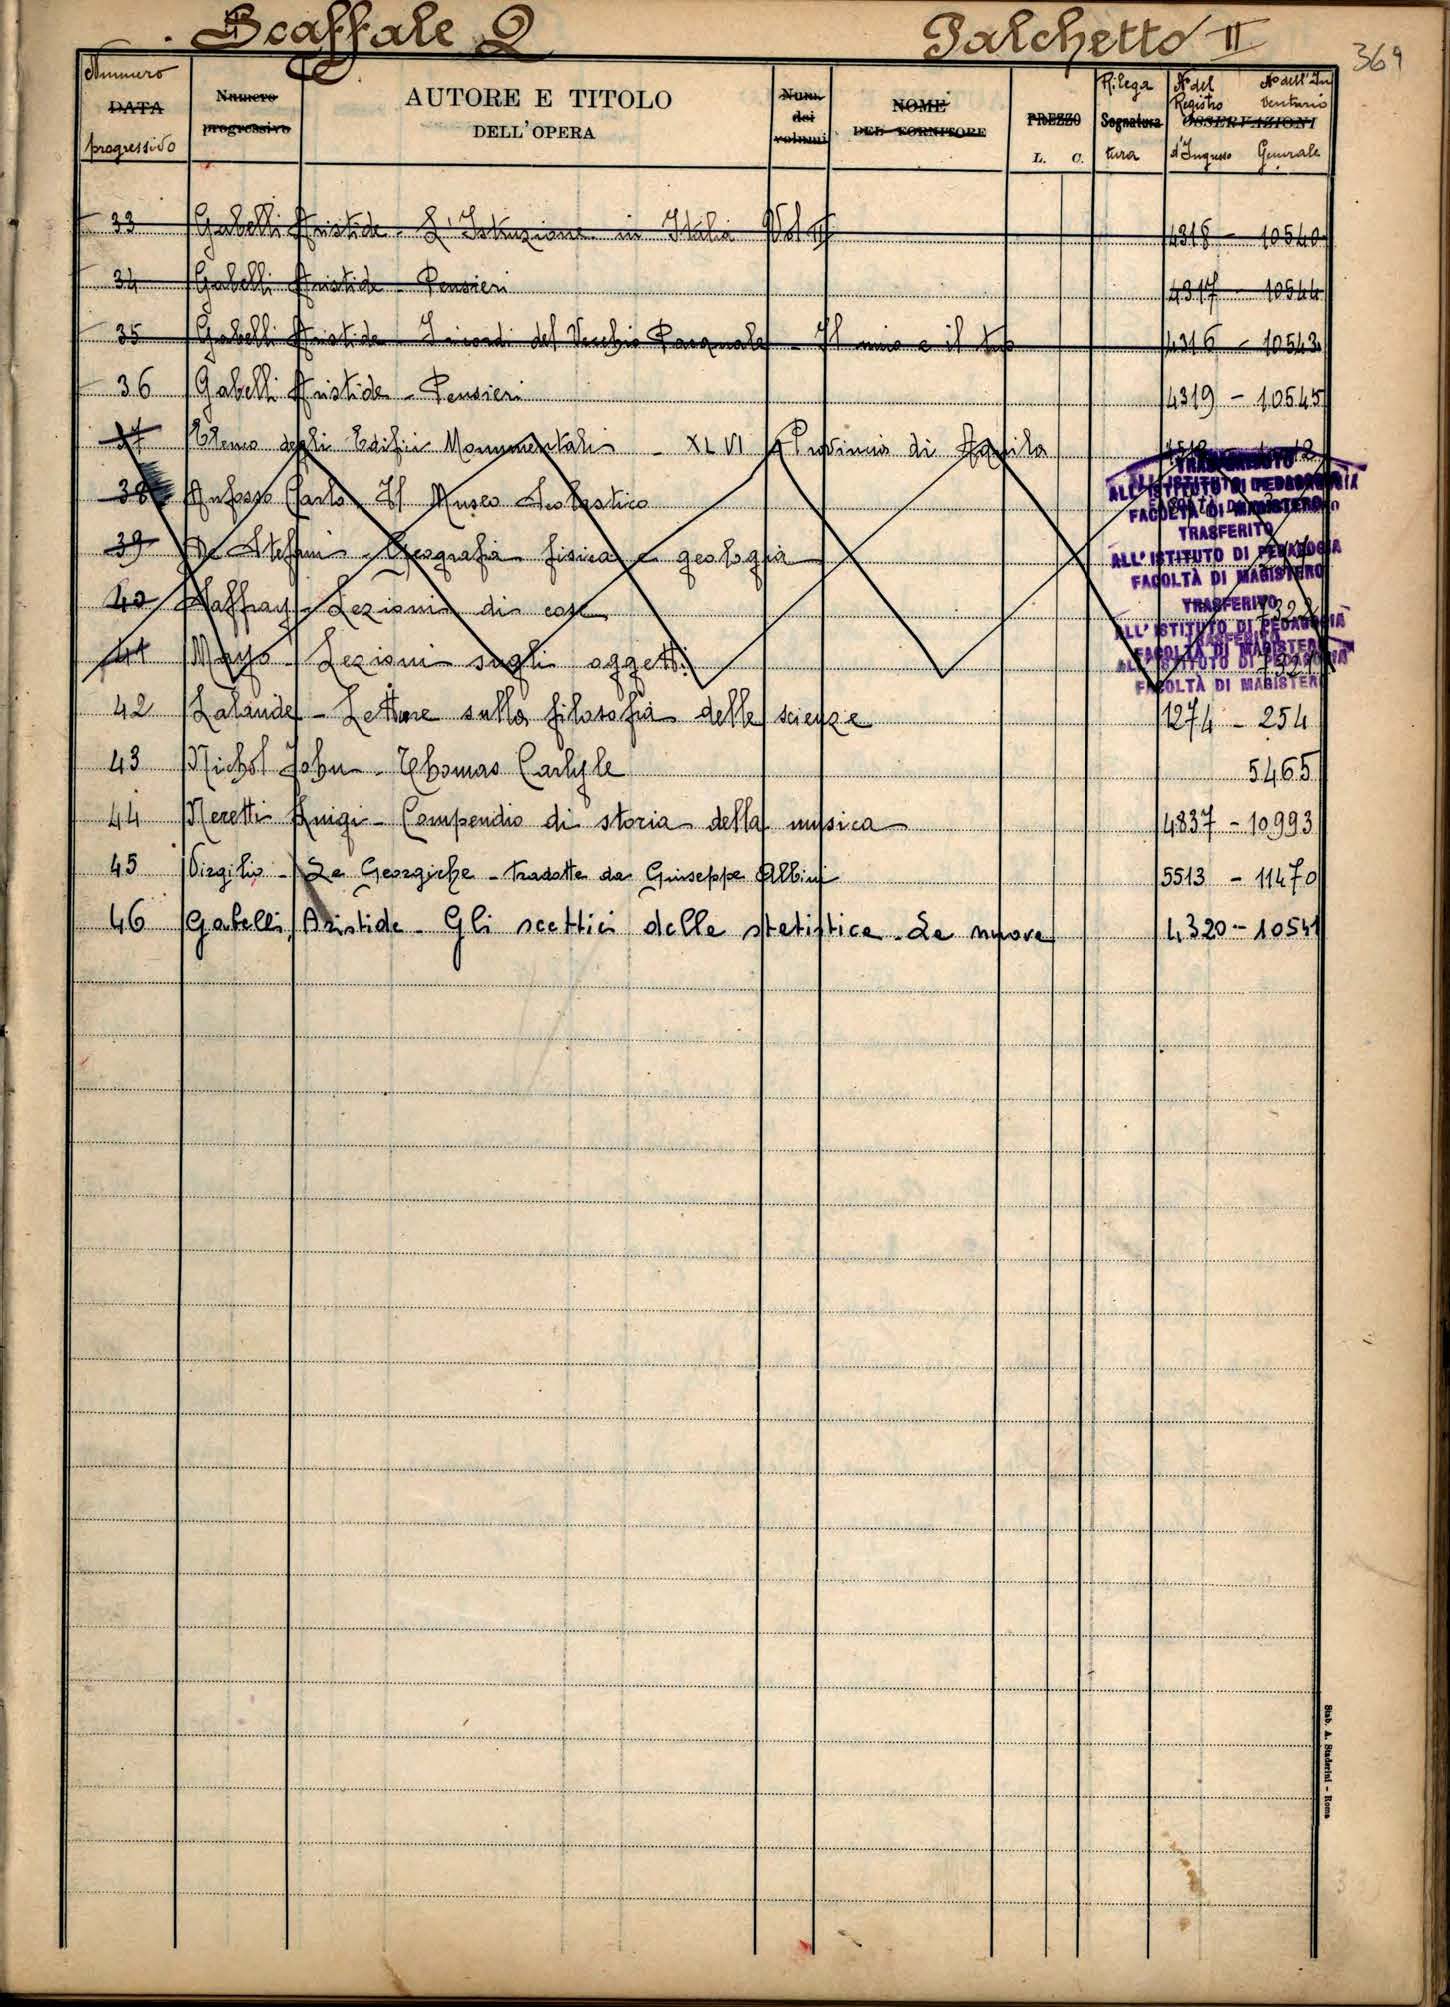 Scaffale Q Palchetto II
369
Numero DATA progressivo
Numero progressivo
AUTORE E TITOLO
DELL'OPERA
Num. dei volumi
NOME DEL FORNITORE
PREZZO
L. C.
Rilega Segnatura tura
N° del Registro d'Ingresso
N° dell'Inventario Generale
OSSERVAZIONI
33 Gabelli Aristide - L'Istruzione in Italia Vol II 4318 - 10540
34 Gabelli Aristide - Pensieri 4317 - 10544
35 Gabelli Aristide - I ricordi del Vecchio Pasquale - Il mio e il tuo 4316 - 10543
36 Gabelli Aristide - Pensieri 4319 - 10545
37 Elenco degli Edifici Monumentali - XLVI Provincia di Aquila
38 Anfosso Carlo Il Museo Scolastico
39 De Stefani - Geografia fisica e geologia
40 Saffray - Lezioni di cose
41 Mayo - Lezioni sugli oggetti
TRASFERITO
ALL'ISTITUTO DI PEDAGOGIA
FACOLTÀ DI MAGISTERO
TRASFERITO
ALL'ISTITUTO DI PEDAGOGIA
FACOLTÀ DI MAGISTERO
TRASFERITO
ALL'ISTITUTO DI PEDAGOGIA
FACOLTÀ DI MAGISTERO
TRASFERITO
ALL'ISTITUTO DI PEDAGOGIA
FACOLTÀ DI MAGISTERO
42 Lalande - Letture sulla filosofia delle scienze 1274 - 254
43 Nichol John - Thomas Carlyle 5465
44 Neretti Luigi - Compendio di storia della musica 4837 - 10993
45 Virgilio - Le Georgiche - tradotte da Giuseppe Albini 5513 - 11470
46 Gabelli, Aristide - Gli scettici della statistica - La nuova 4320 - 10541
Stab. A. Staderini - Roma